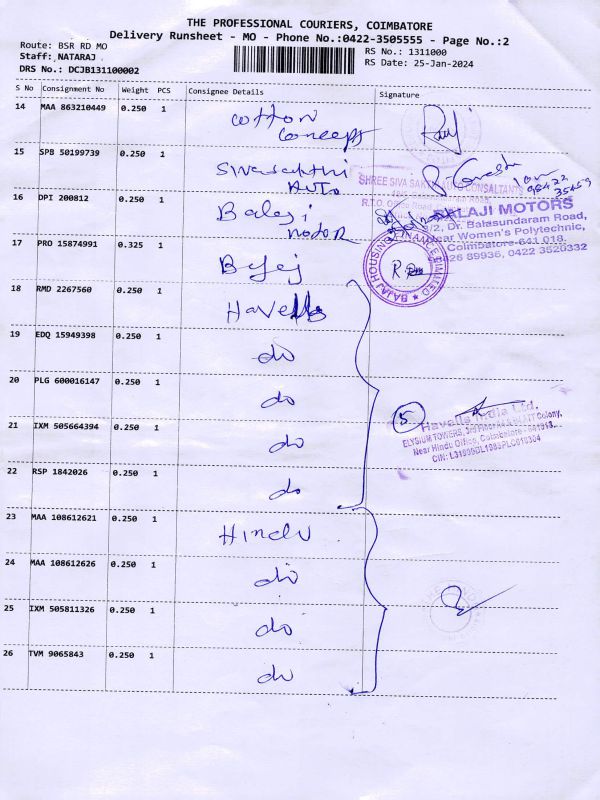 THE PROFESSIONAL COURIERS, COIMBATORE
Delivery Runsheet - MO - Phone No.:0422-3505555 - Page No.:2
Route: BSR RD MO
Staff: NATARAJ
DRS No.: DCJB131100002
RS No.: 1311000
RS Date: 25-Jan-2024
S No Consignment No Weight PCS Consignee Details Signature
14 MAA 863210449 0.250 1 Cotton Concept
15 SPB 50199739 0.250 1 Sivasakthi Auto
SHREE SIVA SAKTHI AUTO CONSALTANTS
R.T.O. Office Road
16 DPI 200812 0.250 1 Balaji Motor
BALAJI MOTORS
Dr. Balasundaram Road,
Near Women's Polytechnic,
Coimbatore-641 018.
89936, 0422 3526332
17 PRO 15874991 0.325 1 Bajaj
BAJAJ HOUSING FINANCE LIMITED
18 RMD 2267560 0.250 1 Havells
19 EDQ 15949398 0.250 1 do
20 PLG 600016147 0.250 1 do
5
21 IXM 505664394 0.250 1 do
Havells India Ltd.
ELYSIUM TOWERS, 3rd Floor Colony,
Near Hindu Office, Coimbatore
22 RSP 1842026 0.250 1 do
23 MAA 108612621 0.250 1 Hindu
24 MAA 108612626 0.250 1 do
25 IXM 505811326 0.250 1 do
26 TVM 9065843 0.250 1 do